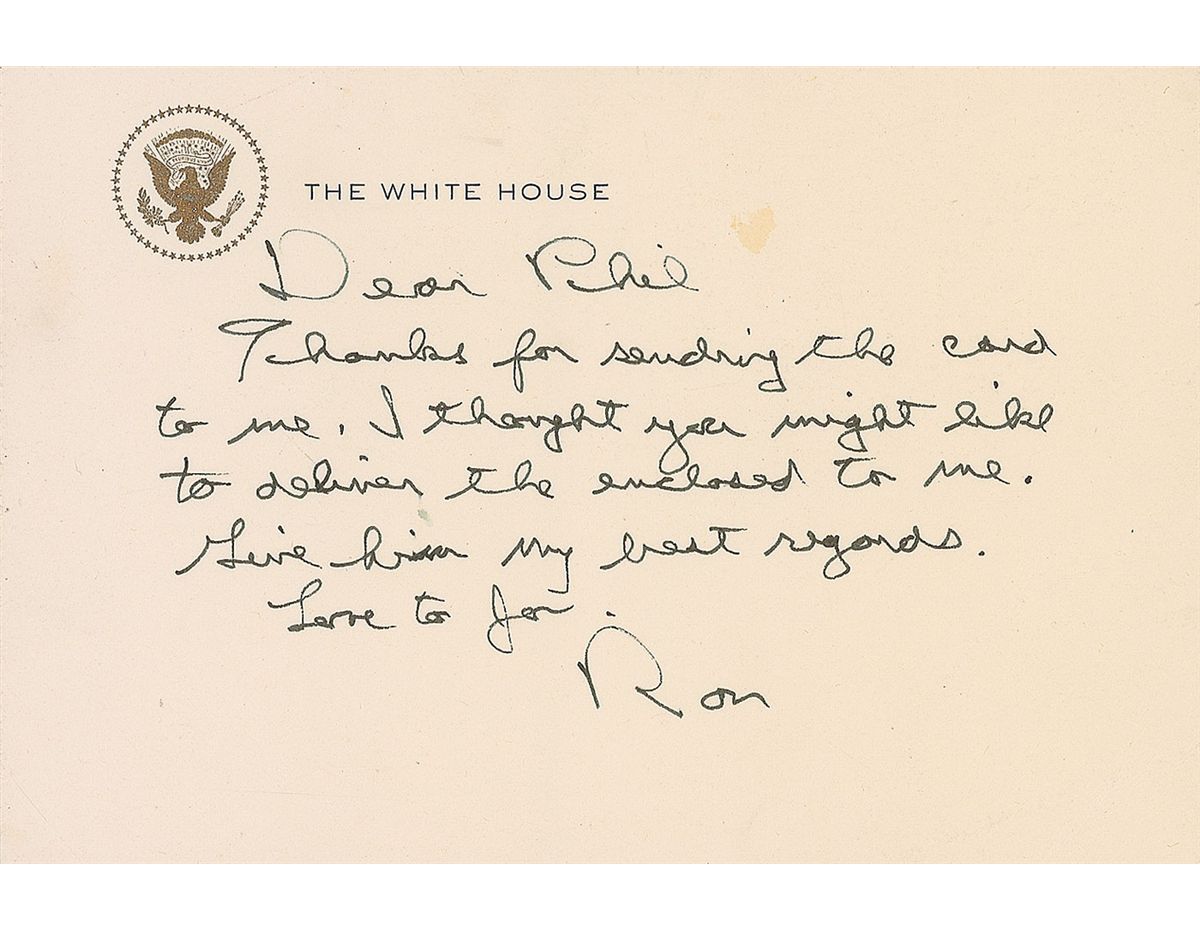 THE WHITE HOUSE
Dear Phil
Thanks for sending the card
to me. I thought you might like
to deliver the enclosed to me.
Give him my best regards.
Love to Jo.
Ron